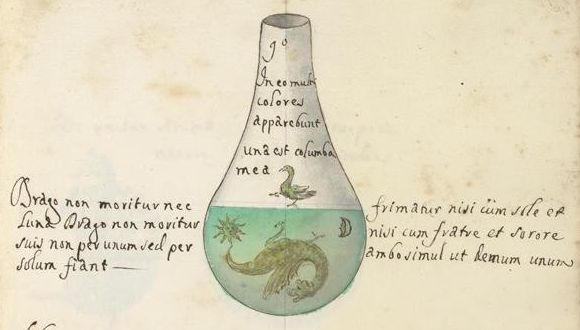 9º
In eo multi
colores
apparebunt
una est columba
mea
Drago non moritur nec
Luna Drago non moritur
suis non per unum sed per
solum fiant
frimatur nisi cùm sole et
nisi cum fratre et sorore
ambo simul ut demum unum